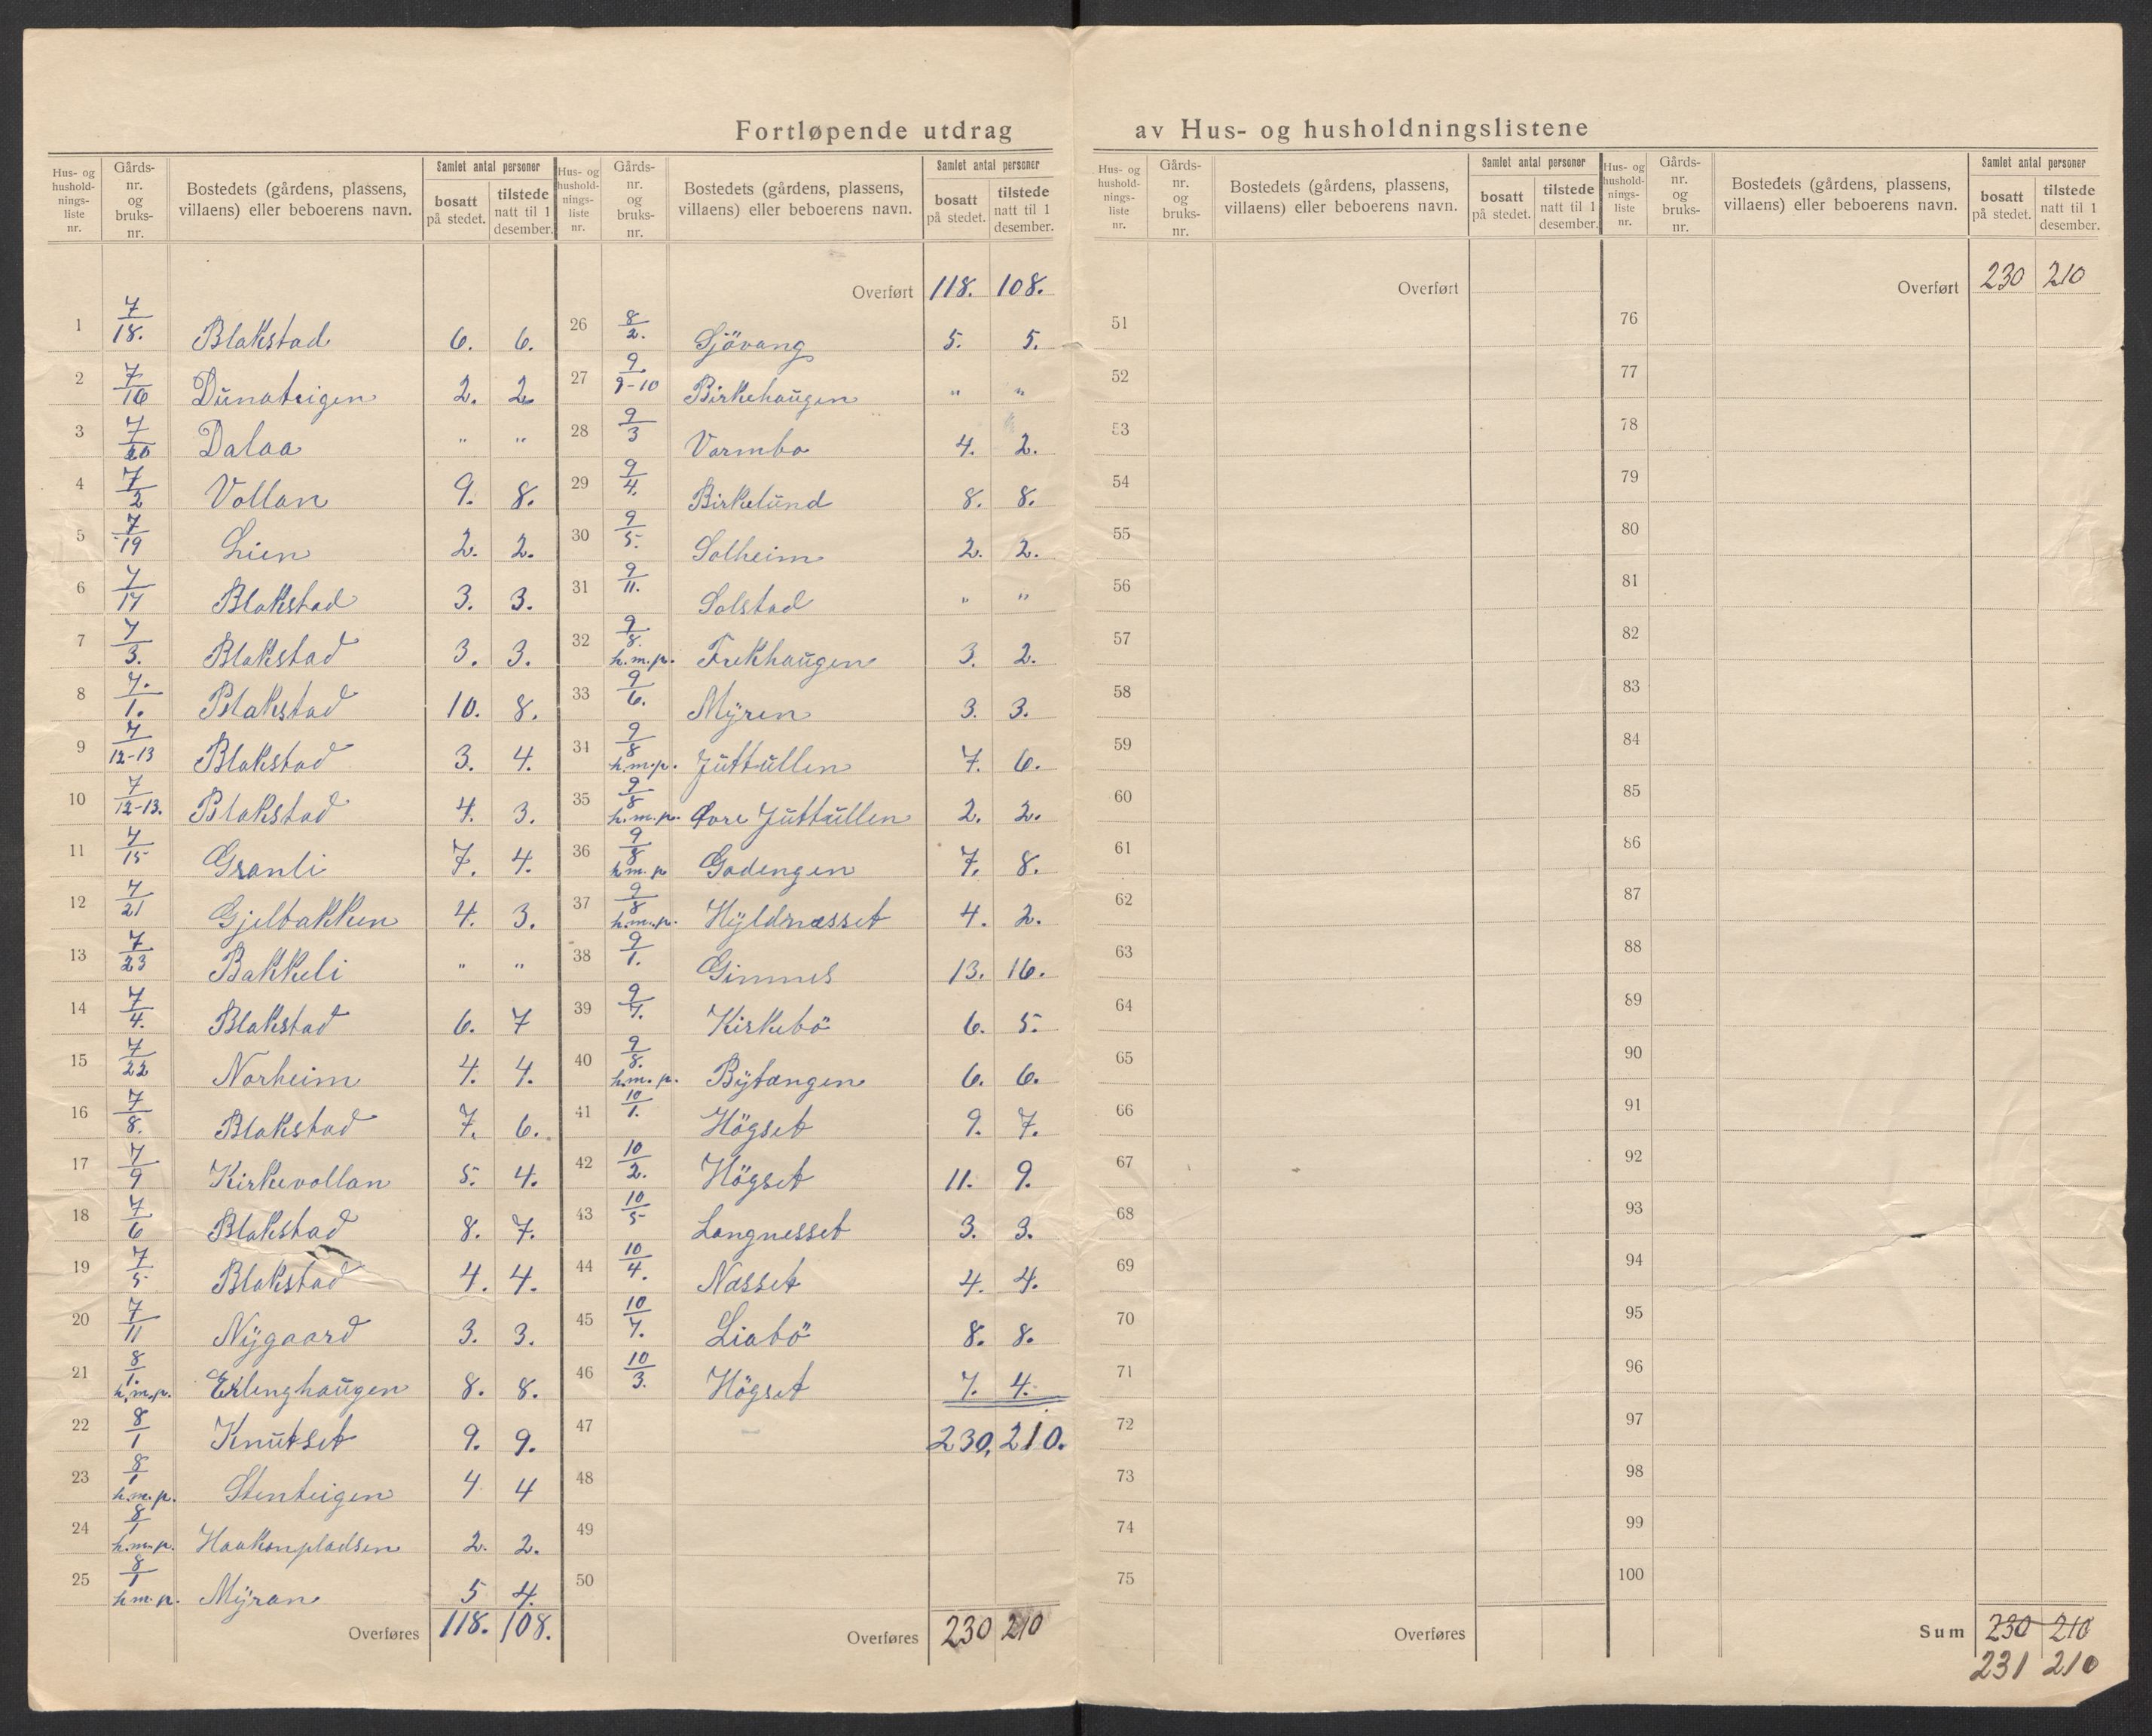 Fortløpende utdrag av Hus- og husholdningslistene
Hus- og hushold-nings-liste nr. | Gårds-nr. og bruks-nr. | Bostedets (gårdens, plassens, villaens) eller beboerens navn. | Samlet antal personer | bosatt på stedet. | tilstede natt til 1 desember.
1 7/18. Blakstad 6. 6.
2 7/16 Dünateigen 2. 2
3 7/20 Dalaa " "
4 7/2 Vollan 9. 8.
5 7/19 Lien 2. 2.
6 7/17 Blakstad 3. 3.
7 7/3. Blakstad 3. 3.
8 7./1. Blakstad 10. 8.
9 7/12-13 Blakstad 3. 4.
10 7/12-13. Blakstad 4. 3.
11 7/15 Granli 7. 4.
12 7/21 Gjelbakken 4. 3.
13 7/23 Bakkeli " "
14 7/4. Blakstad 6. 7
15 7/22 Norheim 4. 4.
16 7/8. Blakstad 7. 6.
17 7/9 Kirkevollan 5. 4.
18 7/6 Blakstad 8. 7.
19 7/5 Blakstad 4. 4.
20 7/11 Nÿgaard 3. 3.
21 8/1. h.m.p. Erlinghaugen 8. 8.
22 8/1 Knutset 9. 9.
23 8/1 h.m.p. Stenteigen 4 4
24 8/1 h.m.p. Haakonpladsen 2. 2.
25 8/1 h.m.p. Mÿran 5 4.
Overføres 118. 108.
Hus- og hushold-nings-liste nr. | Gårds-nr. og bruks-nr. | Bostedets (gårdens, plassens, villaens) eller beboerens navn. | Samlet antal personer | bosatt på stedet. | tilstede natt til 1 desember.
Overført 118. 108.
26 8/2. Sjövang 5. 5.
27 9/9-10 Birkehaugen " "
28 9/3 Varmbo 4. 2.
29 9/4. Birkelund 8. 8.
30 9/5. Solheim 2. 2.
31 9/11. Solstad " "
32 9/8. h.m.p. Frekhaugen 3. 2.
33 9/6. Mÿren 3. 3.
34 9/8 h.m.p. Juttullen 7. 6.
35 9/8 h.m.p. Øvre Juttullen 2. 2.
36 9/8 h.m.p Gadengen 7. 8.
37 9/8 h.m.p. Hÿldnæsset 4. 2.
38 9/1. Gimnes 13. 16.
39 9/7. Kirkebö 6. 5.
40 9/8. h.m.p. Bÿtangen 6. 6.
41 10/1. Högset 9. 7.
42 10/2. Högset 11. 9.
43 10/5 Langnesset 3. 3.
44 10/4. Næsset 4. 4.
45 10/7. Liabö 8. 8.
46 10/3. Högset 7. 4.
47 230, 210.
48
49
50
Overføres 230 210
Hus- og hushold-nings-liste nr. | Gårds-nr. og bruks-nr. | Bostedets (gårdens, plassens, villaens) eller beboerens navn. | Samlet antal personer | bosatt på stedet. | tilstede natt til 1 desember.
Overført
51
52
53
54
55
56
57
58
59
60
61
62
63
64
65
66
67
68
69
70
71
72
73
74
75
Overføres
Hus- og hushold-nings-liste nr. | Gårds-nr. og bruks-nr. | Bostedets (gårdens, plassens, villaens) eller beboerens navn. | Samlet antal personer | bosatt på stedet. | tilstede natt til 1 desember.
Overført 230 210
76
77
78
79
80
81
82
83
84
85
86
87
88
89
90
91
92
93
94
95
96
97
98
99
100
Sum 230 210
231 210